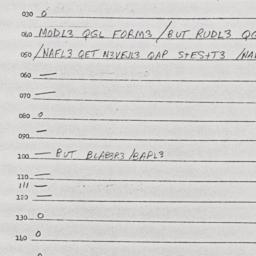 030 0
040 MODL3 QGL FORM3 /BUT RUDL3 QG
050 /NAFL3 QET N3VEJL3 QAP S+ES+T3 /NA
060 —
070 —
080 0
090 —
100 — BUT BLABBR3 /BAPL3
110 —
111 —
120 —
130 0
140 0